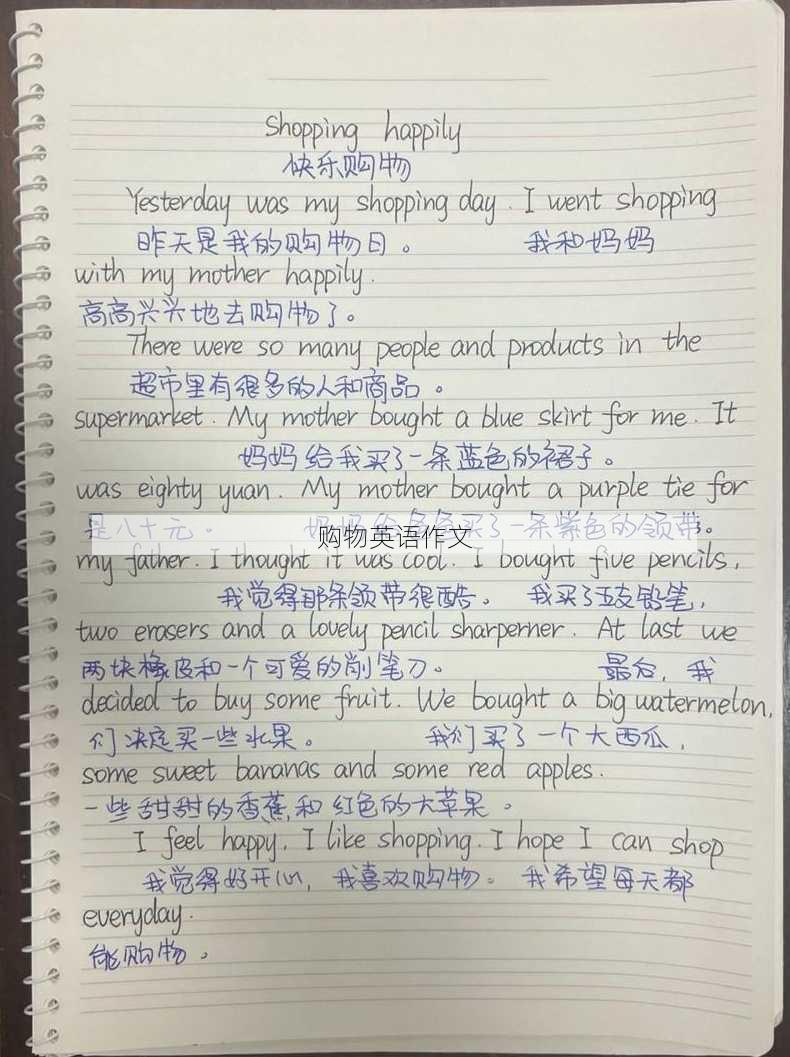 Shopping happily
快乐购物
Yesterday was my shopping day. I went shopping
昨天是我的购物日。 我和妈妈
with my mother happily.
高高兴兴地去购物了。
There were so many people and products in the
超市里有很多的人和商品。
supermarket. My mother bought a blue skirt for me. It
妈妈给我买了一条蓝色的裙子。
was eighty yuan. My mother bought a purple tie for
是八十元。 妈妈给爸爸买了一条紫色的领带。
购物英语作文
my father. I thought it was cool. I bought five pencils,
我觉得那条领带很酷。 我买了五支铅笔,
two erasers and a lovely pencil sharperner. At last we
两块橡皮和一个可爱的削笔刀。 最后,我
decided to buy some fruit. We bought a big watermelon,
们决定买一些水果。 我们买了一个大西瓜,
some sweet bananas and some red apples.
一些甜甜的香蕉和红色的大苹果。
I feel happy. I like shopping. I hope I can shop
我觉得好开心,我喜欢购物。 我希望每天都
everyday.
能购物。